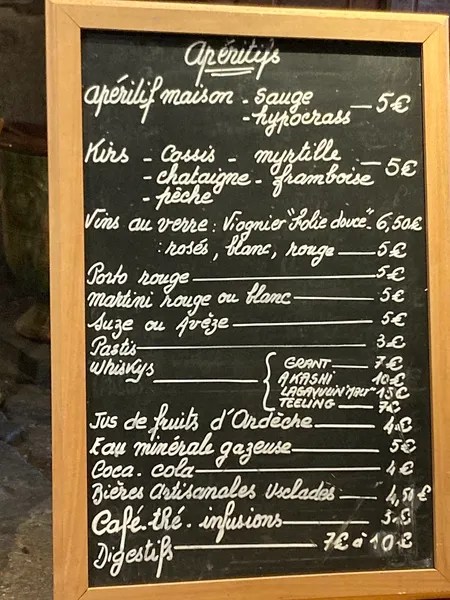 Apéritifs
apéritif maison - Sauge — 5€
- hypocrass
Kirs - Cassis - myrtille — 5€
- chataigne - framboise
- pêche
Vins au verre : Viognier "Folie douce" - 6,50€
: rosés, blanc, rouge — 5€
Porto rouge — 5€
martini rouge ou blanc — 5€
Suze ou Avèze — 5€
Pastis — 3€
Whiskys — { GRANT — 7€
AKASHI 10€
LAGAVULIN 15€
TEELING — 7€
Jus de fruits d'Ardèche — 4€
Eau minérale gazeuse — 5€
Coca-cola — 4€
Bières Artisanales Usclades — 4,50€
Café-thé-infusions — 3€
Digestifs — 7€ à 10€